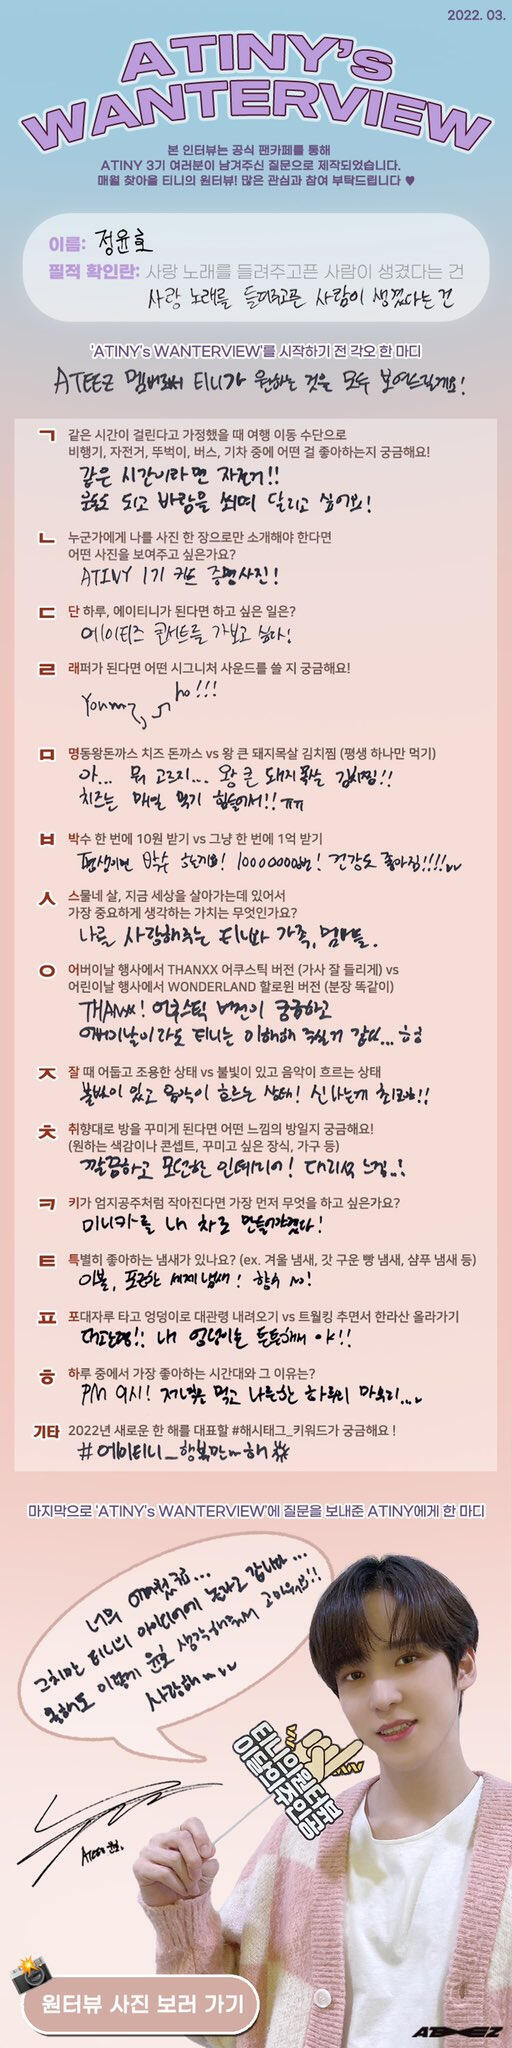 2022. 03.
ATINY's
WANTERVIEW
본 인터뷰는 공식 팬카페를 통해
ATINY 3기 여러분이 남겨주신 질문으로 제작되었습니다.
매월 찾아올 티니의 원터뷰! 많은 관심과 참여 부탁드립니다 ♥
이름: 정윤호
필적 확인란: 사랑 노래를 들려주고픈 사람이 생겼다는 건
사랑 노래를 들려주고픈 사람이 생겼다는 건
'ATINY's WANTERVIEW'를 시작하기 전 각오 한 마디
ATEEZ 멤버로써 티니가 원하는 것을 모두 보여드릴게요!
ㄱ 같은 시간이 걸린다고 가정했을 때 여행 이동 수단으로
비행기, 자전거, 뚜벅이, 버스, 기차 중에 어떤 걸 좋아하는지 궁금해요!
같은 시간이라면 자전거!!
운동도 되고 바람을 쐬며 달리고 싶어요!
ㄴ 누군가에게 나를 사진 한 장으로만 소개해야 한다면
어떤 사진을 보여주고 싶은가요?
ATINY 1기 키트 증명사진!
ㄷ 단 하루, 에이티니가 된다면 하고 싶은 일은?
에이티즈 콘서트를 가보고 싶다!
ㄹ 래퍼가 된다면 어떤 시그니처 사운드를 쓸 지 궁금해요!
ho!!!
ㅁ 명동왕돈까스 치즈 돈까스 vs 왕 큰 돼지목살 김치찜 (평생 하나만 먹기)
아... 뭐 고르지... 왕 큰 돼지목살 김치찜!!
치즈는 매일 먹기 힘들어서!! ㅠㅠ
ㅂ 박수 한 번에 10원 받기 vs 그냥 한 번에 1억 받기
평생이면 박수 10000000번! 건강도 좋아짐!!!!
ㅅ 스물네 살, 지금 세상을 살아가는데 있어서
가장 중요하게 생각하는 가치는 무엇인가요?
나를 사랑해주는 티니와 가족, 멤버들.
ㅇ 어버이날 행사에서 THANXX 어쿠스틱 버전 (가사 잘 들리게) vs
어린이날 행사에서 WONDERLAND 할로윈 버전 (분장 똑같이)
THANXX! 어쿠스틱 버전이 궁금하고
어버이날이라도 티니는 이해해 주실거 같아...
ㅈ 잘 때 어둡고 조용한 상태 vs 불빛이 있고 음악이 흐르는 상태
불빛이 있고 음악이 흐르는 상태! 신나는게 최고야!!
ㅊ 취향대로 방을 꾸미게 된다면 어떤 느낌의 방일지 궁금해요!
(원하는 색감이나 콘셉트, 꾸미고 싶은 장식, 가구 등)
깔끔하고 모던한 인테리어! 대리석 느낌..!
ㅋ 키가 엄지공주처럼 작아진다면 가장 먼저 무엇을 하고 싶은가요?
미니카를 내 차로 만들어야겠다!
ㅌ 특별히 좋아하는 냄새가 있나요? (ex. 겨울 냄새, 갓 구운 빵 냄새, 샴푸 냄새 등)
이불, 포근한 세제냄새! 향수 no!
ㅍ 포대자루 타고 엉덩이로 대관령 내려오기 vs 트월킹 추면서 한라산 올라가기
대관령!! 내 엉덩이는 튼튼해서 야!!
ㅎ 하루 중에서 가장 좋아하는 시간대와 그 이유는?
PM 9시! 저녁을 먹고 나른한 하루의 마무리...
기타 2022년 새로운 한 해를 대표할 #해시태그_키워드가 궁금해요 !
#에이티니_행복만 해
마지막으로 'ATINY's WANTERVIEW'에 질문을 보내준 ATINY에게 한 마디
너무 어려웠고...
그치만 티니의 아이디어에 놀라고 갑니다...
올해도 이렇게 윤호 생각해줘서 고마워요!!
사랑해
티니의 원터뷰
이달의 주인공
ATEEZ 윤호
원터뷰 사진 보러 가기
ATEEZ